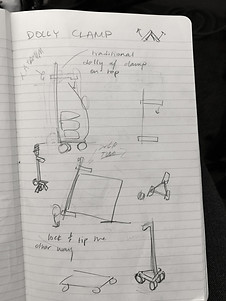 DOLLY CLAMP
traditional
dolly w/ clamp
on top
lock & tip the
other way